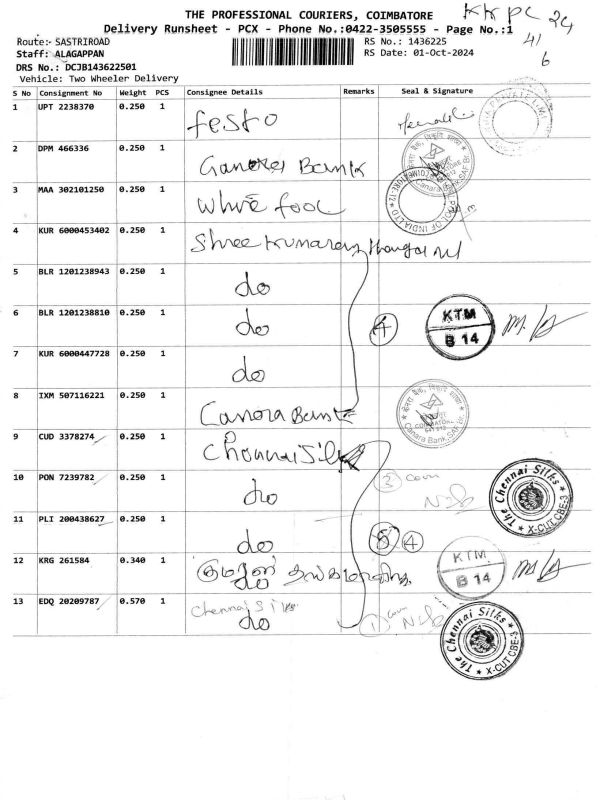 THE PROFESSIONAL COURIERS, COIMBATORE
Delivery Runsheet - PCX - Phone No.:0422-3505555 - Page No.:1
KKPC 24
41
6
Route:- SASTRIROAD
RS No.: 1436225
Staff: ALAGAPPAN
RS Date: 01-Oct-2024
DRS No.: DCJB143622501
Vehicle: Two Wheeler Delivery
S No Consignment No Weight PCS Consignee Details Remarks Seal & Signature
1 UPT 2238370 0.250 1 festo
2 DPM 466336 0.250 1 Canara Bank
3 MAA 302101250 0.250 1
4 KUR 6000453402 0.250 1 Shree Kumaran
5 BLR 1201238943 0.250 1 do
6 BLR 1201238810 0.250 1 do 4 KTM B 14
7 KUR 6000447728 0.250 1 do
8 IXM 507116221 0.250 1 Canara Bank
Canara Bank
COIMBATORE
9 CUD 3378274 0.250 1 Chennai Silk
10 PON 7239782 0.250 1 do
The Chennai Silks
X-CUT CBE-3
11 PLI 200438627 0.250 1 do 4
12 KRG 261584 0.340 1 do KTM B 14
13 EDQ 20209787 0.570 1 Chennai Silks do
The Chennai Silks
X-CUT CBE-3